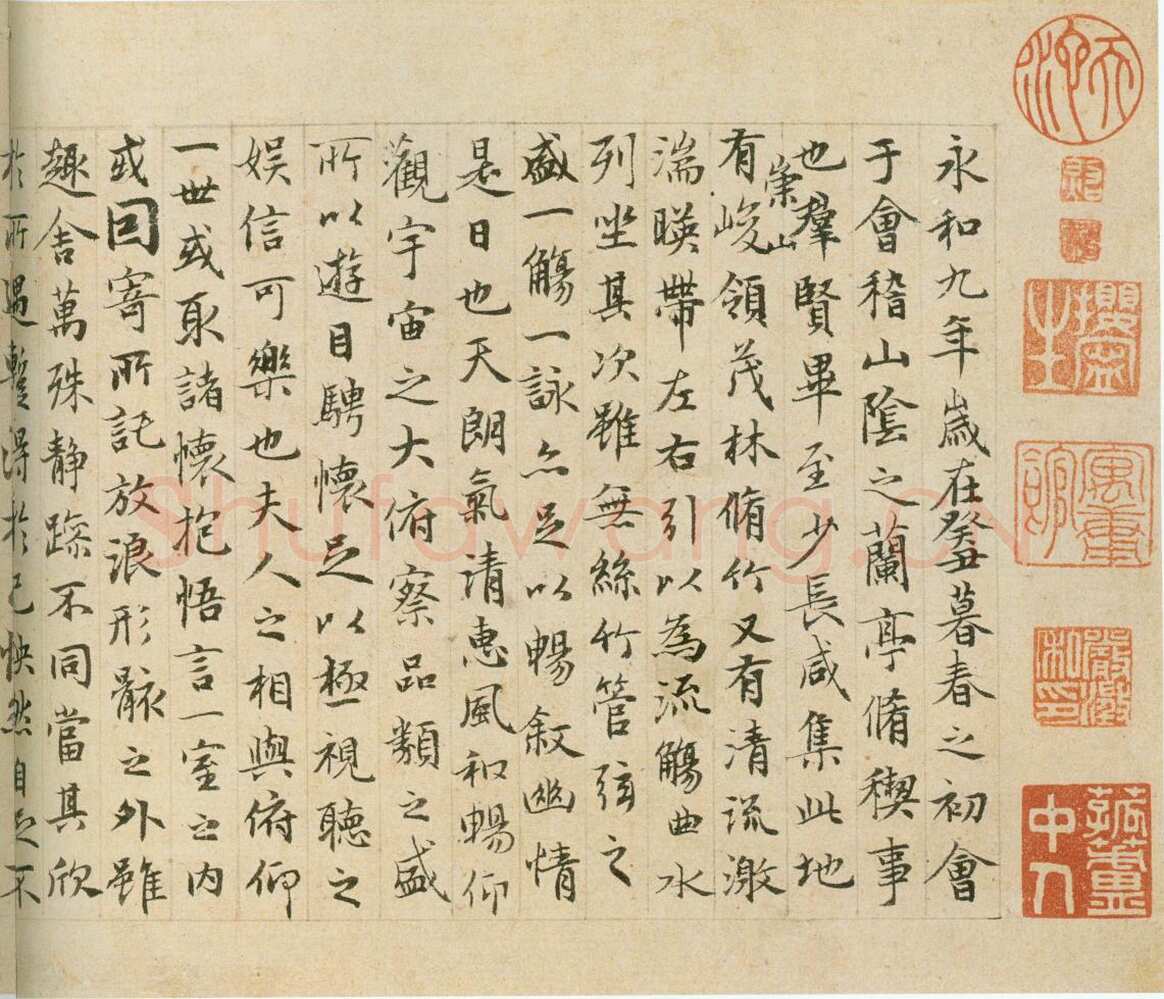 永和九年歲在癸丑暮春之初會
于會稽山陰之蘭亭脩稧事
也羣賢畢至少長咸集此地
有崇山峻領茂林脩竹又有清流激
湍暎帶左右引以為流觴曲水
列坐其次雖無絲竹管弦之
盛一觴一詠亦足以暢敘幽情
是日也天朗氣清惠風和暢仰
觀宇宙之大俯察品類之盛
所以遊目騁懷足以極視聽之
娛信可樂也夫人之相與俯仰
一世或取諸懷抱悟言一室之內
或因寄所託放浪形骸之外雖
趣舍萬殊靜躁不同當其欣
於所遇蹔得於己怏然自足不
攖寧之主
嚴澂私印
菰蘆中人
Shufawang.CN